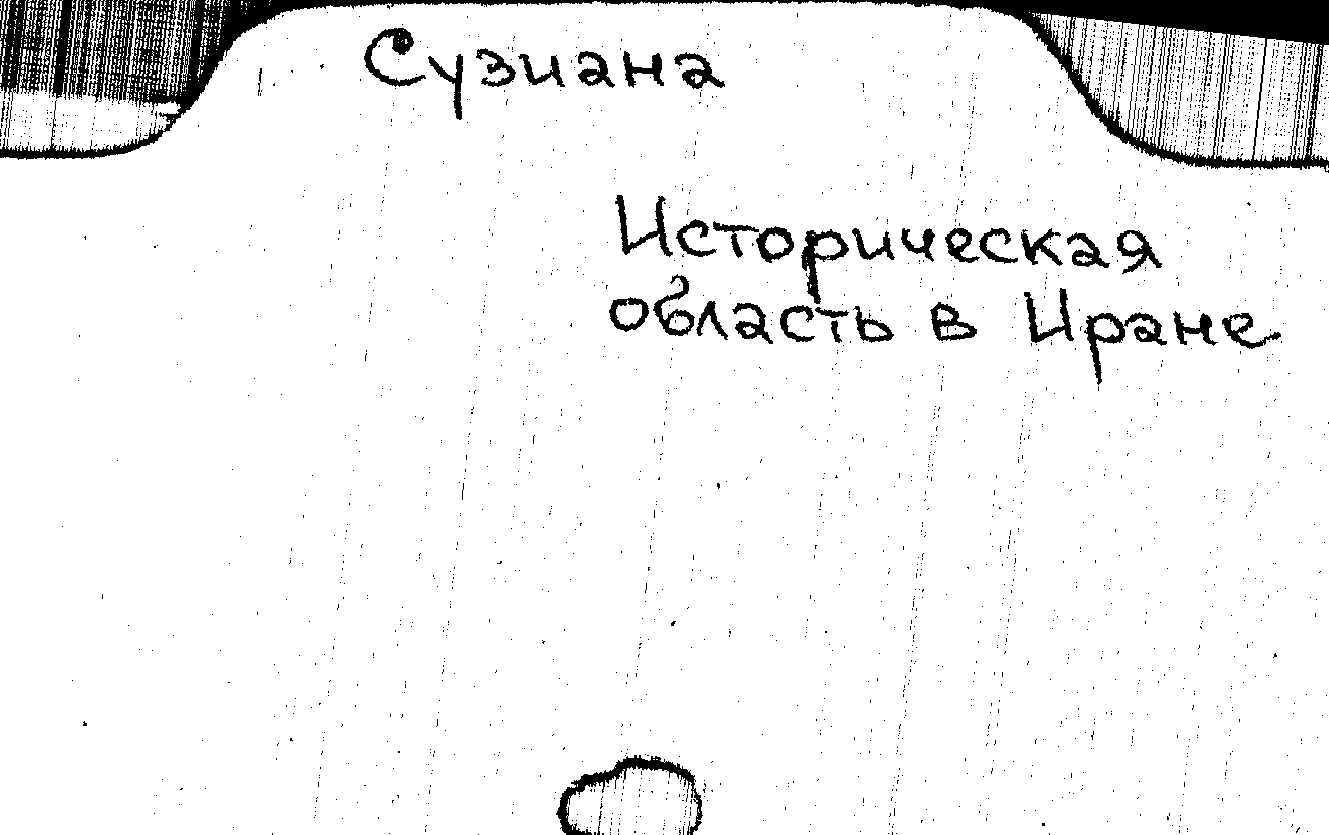 Сузиана
Историческая
область в Иране